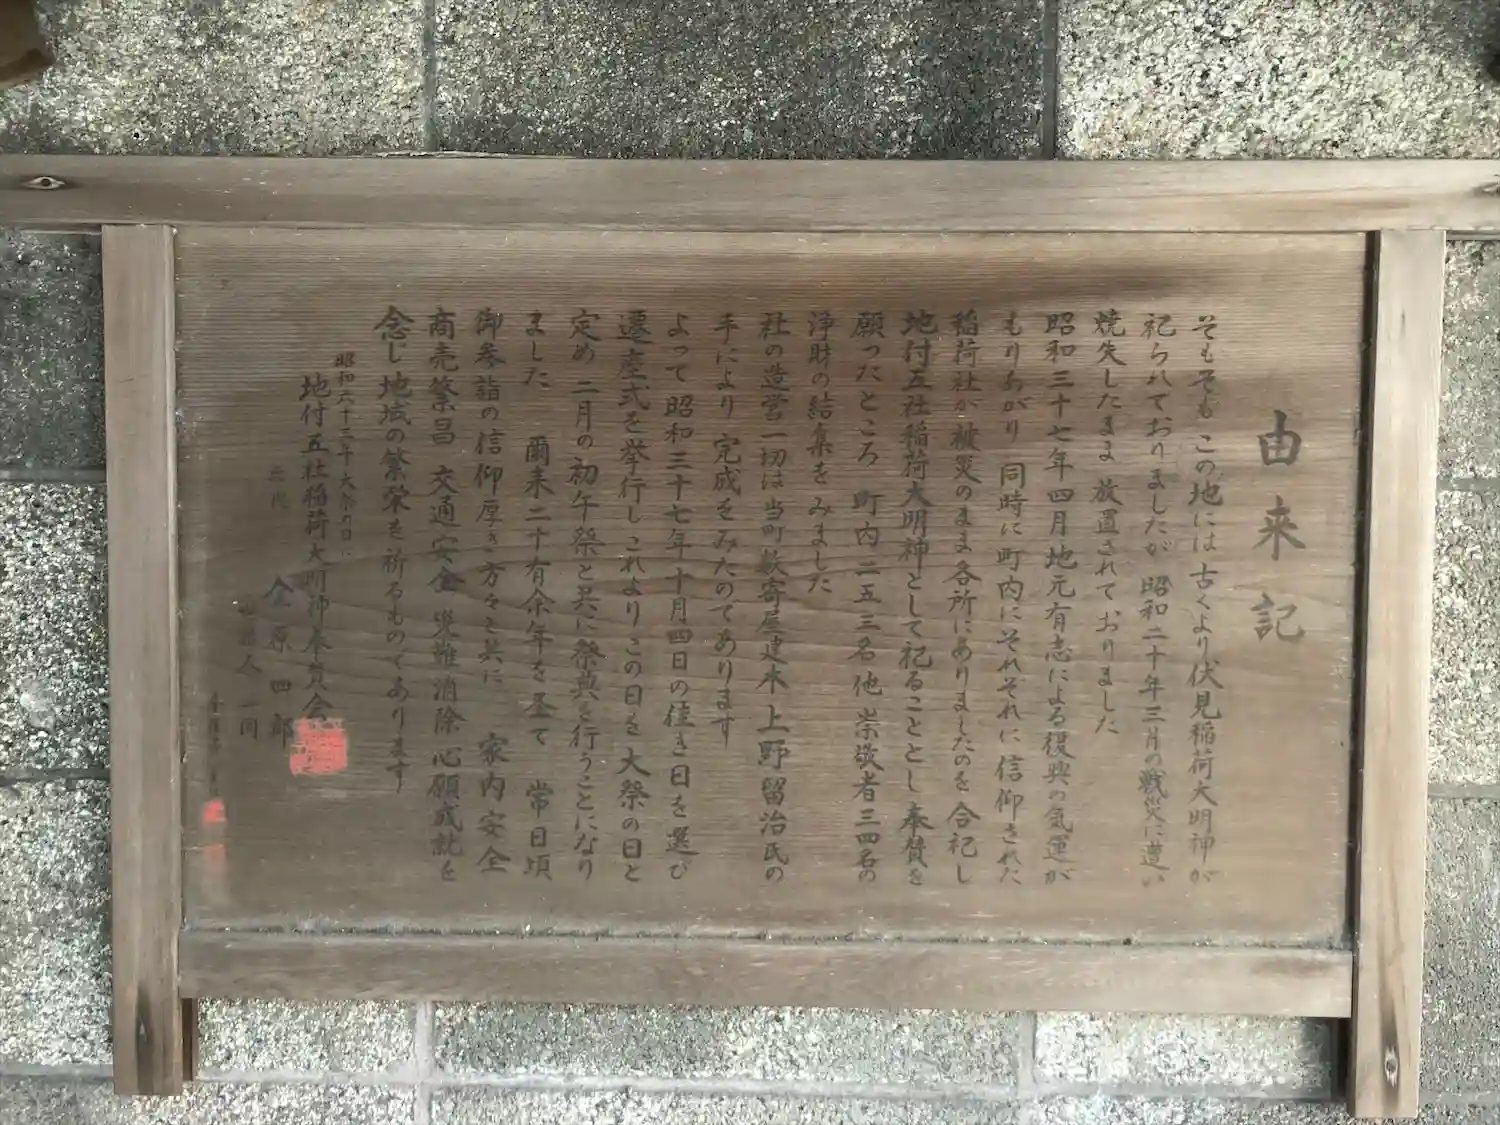 由来記
そもそも この地には古くより伏見稲荷大明神が
祀られておりましたが 昭和二十年三月の戦災に遭い
焼失したまま 放置されておりました
昭和三十七年四月地元有志による復興の気運が
もりあがり 同時に町内にそれぞれに信仰された
稲荷社が被災のまま各所にありましたのを 合祀し
地付五社稲荷大明神として祀ることとし 奉賛を
願ったところ 町内二五三名他 崇敬者三四名の
浄財の結集をみました
社の造営一切は当町数寄屋建来 上野留治氏の
手により 完成をみたのであります
よって 昭和三十七年十月四日の佳き日を選び
遷座式を挙行し これよりこの日を 大祭の日と
定め 二月の初午祭と共に祭典を行うことになり
ました 爾来二十有余年を 常日頃
御参詣の信仰厚き方々と共に 家内安全
商売繁昌 交通安全 災難消除 心願成就を
念じ 地域の繁栄を祈るものであります
昭和六十三年大祭の日に
地付五社稲荷大明神奉賛会
金原四郎
人一同